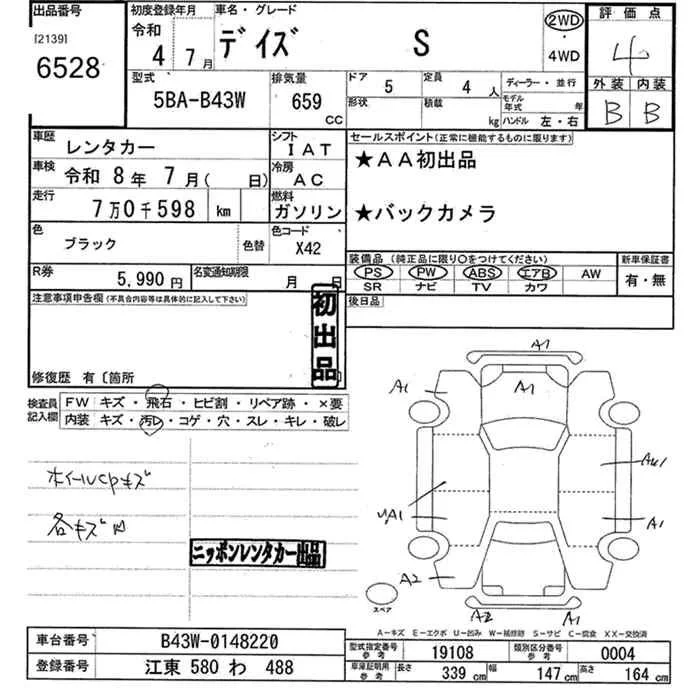 出品番号
[2139]
6528
初度登録年月
令和
4 7月
車名・グレード
デイズ S
2WD
・
4WD
評価点
4
外装 内装
B B
型式
5BA-B43W
排気量
659
CC
ドア 5
定員 4人
形状
積載 kg
ディーラー・並行
モデル年式 年
ハンドル 左・右
車歴 レンタカー
シフト IAT
車検 令和 8年 7月( 日)
冷房 AC
走行 7万0千598 km
燃料 ガソリン
色 ブラック
色替
色コード X42
R券 5,990円
名変通知期限 月 日
セールスポイント(正常に機能するものに限ります)
★AA初出品
★バックカメラ
装備品(純正品に限り○をつけてください)
PS PW ABS エアB AW
SR ナビ TV カワ
新車保証書
有・無
後日品
注意事項申告欄(不具合内容等は具体的に記入して下さい)
初出品
修復歴 有〔箇所
検査員記入欄
FW キズ・飛石・ヒビ割・リペア跡・×要
内装 キズ・汚レ・コゲ・穴・スレ・キレ・破レ
ホイールcpキズ
各キズ凹
ニッポンレンタカー出品
A1
A1
A1
A1
A2
A2
A1
スペア
A-キズ E-エクボ U-凹み W-補修跡 S-サビ C-腐食 XX-交換済
車台番号 B43W-0148220
登録番号 江東 580 わ 488
型式指定番号 参考 19108
類別区分番号 参考 0004
車庫証明用 参考 長さ 339 cm 幅 147 cm 高さ 164 cm